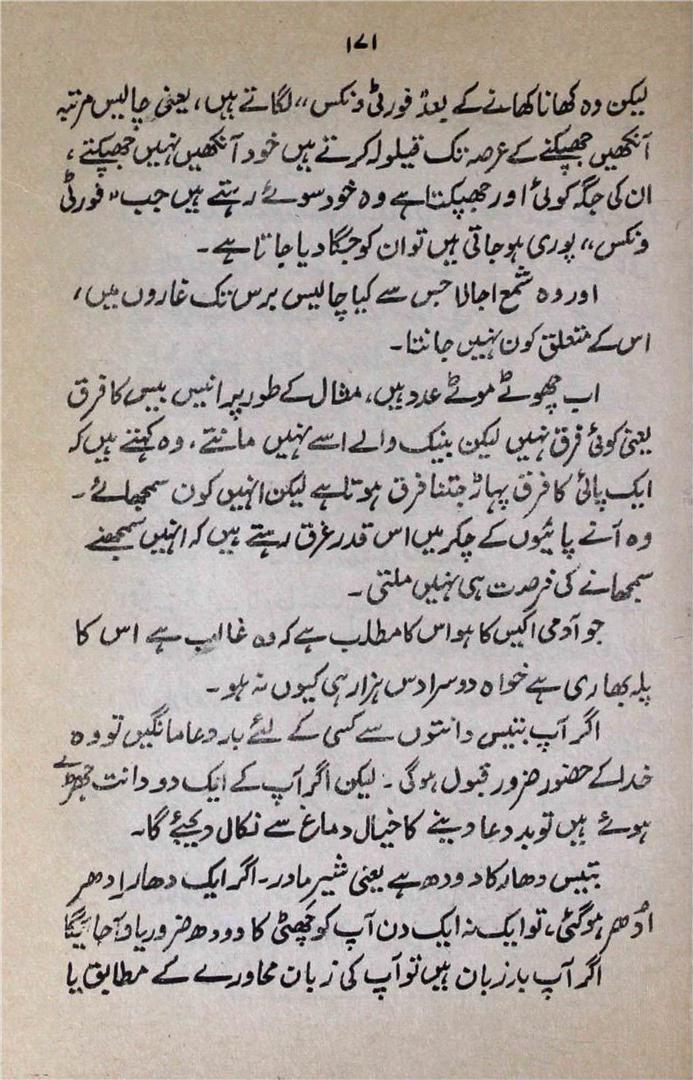 ۱۷۱
لیکن وہ کھانا کھانے کے بعد "فورٹی ونکس" لگاتے ہیں، یعنی چالیس مرتبہ
آنکھیں جھپکنے کے عرصہ تک قیلولہ کرتے ہیں خود آنکھیں نہیں جھپکتے،
ان کی جگہ کوئی اور جھپکتا ہے وہ خود سوئے رہتے ہیں جب "فورٹی
ونکس" پوری ہو جاتی ہیں تو ان کو جگا دیا جاتا ہے۔
اور وہ شمع اجالا جس سے کیا چالیس برس تک غاروں میں،
اس کے متعلق کون نہیں جانتا۔
اب چھوٹے موٹے عدد ہیں، مثال کے طور پر انیس بیس کا فرق
یعنی کوئی فرق نہیں لیکن بینک والے اسے نہیں مانتے۔ وہ کہتے ہیں کہ
ایک پائی کا فرق پہاڑ جتنا فرق ہوتا ہے لیکن انہیں کون سمجھائے۔
وہ آنے پائیوں کے چکر میں اس قدر غرق رہتے ہیں کہ انہیں سمجھنے
سمجھانے کی فرصت ہی نہیں ملتی۔
جو آدمی اکیس کا ہو اس کا مطلب ہے کہ وہ غالب ہے اس کا
پلہ بھاری ہے خواہ دوسرا دس ہزار ہی کیوں نہ ہو۔
اگر آپ بتیس دانتوں سے کسی کے لئے بددعا مانگیں تو وہ
خدا کے حضور ضرور قبول ہوگی۔ لیکن اگر آپ کے ایک دو دانت جھڑے
ہوئے ہیں تو بددعا دینے کا خیال دماغ سے نکال دیجئے گا۔
بتیس دھار کا دودھ ہے یعنی شیرِ مادر۔ اگر ایک دھار ادھر
اُدھر ہو گئی، تو ایک نہ ایک دن آپ کو چھٹی کا دودھ ضرور یاد آجائیگا
اگر آپ بدزبان ہیں تو آپ کی زبان محاورے کے مطابق یا